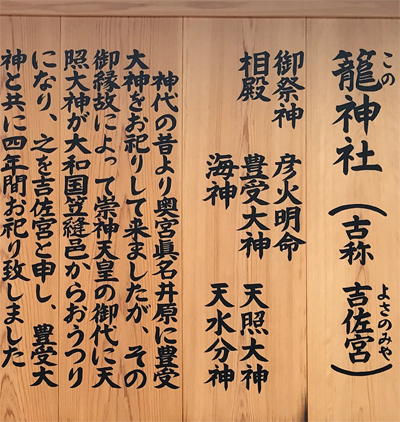 この
籠神社（古称 吉佐宮）
よさのみや
御祭神 彦火明命
相殿 豊受大神 天照大神
海神 天水分神
神代の昔より奥宮眞名井原に豊受
大神をお祀りして来ましたが、その
御縁故によって崇神天皇の御代に天
照大神が大和国笠縫邑からおうつり
になり、之を吉佐宮と申し、豊受大
神と共に四年間お祀り致しました